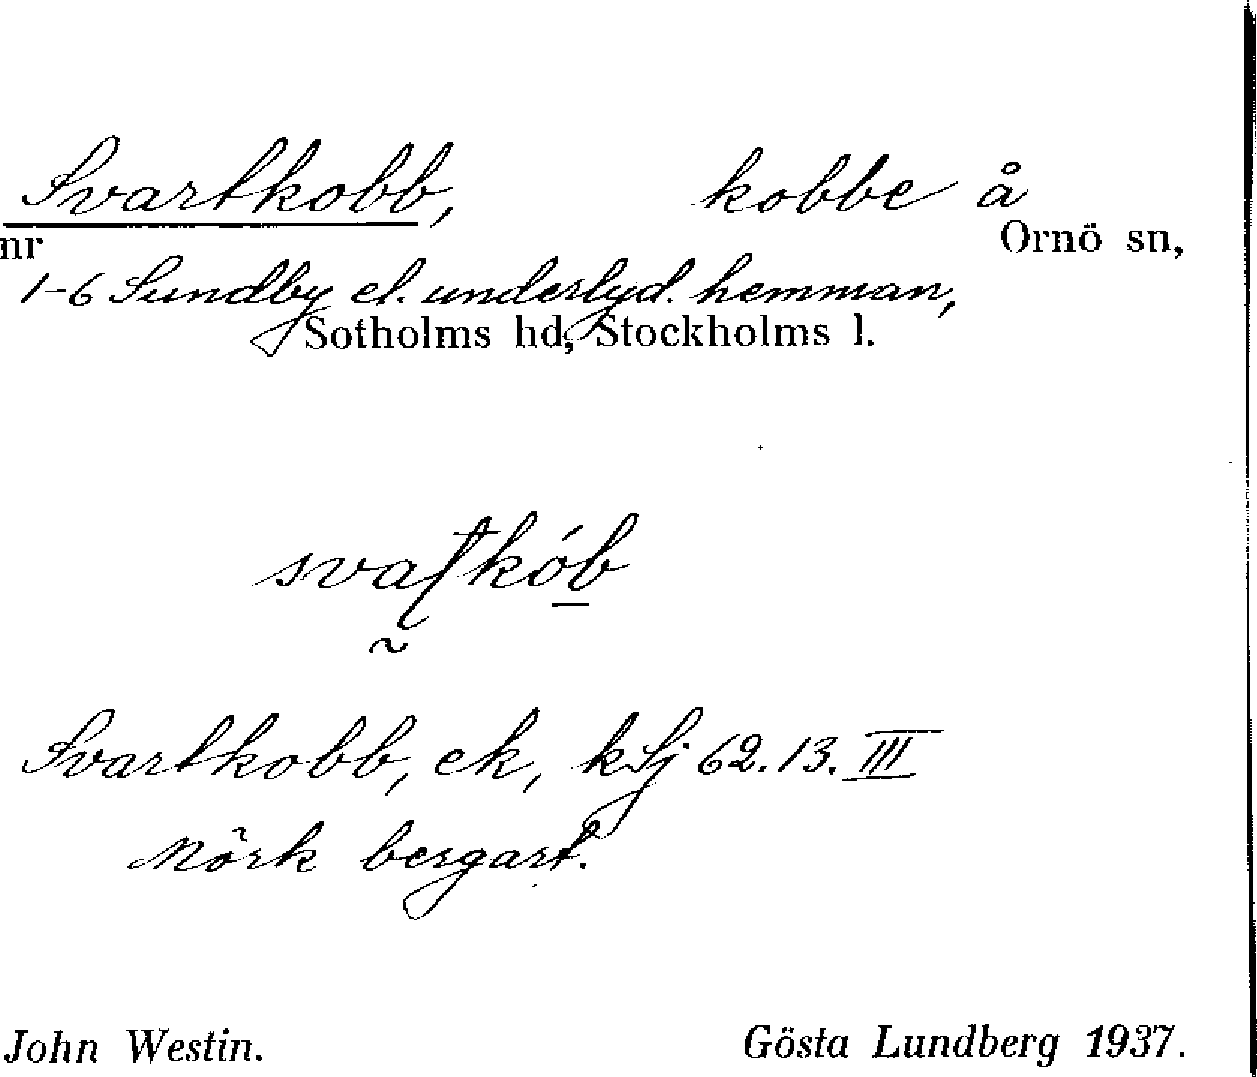 Svartkobb, kobbe å
nr Ornö sn,
1-6 Sundby el. underlyd. hemman,
Sotholms hd, Stockholms l.
Svartkobb, ek, kSj 62.13.III
Mörk bergart.
John Westin. Gösta Lundberg 1937.